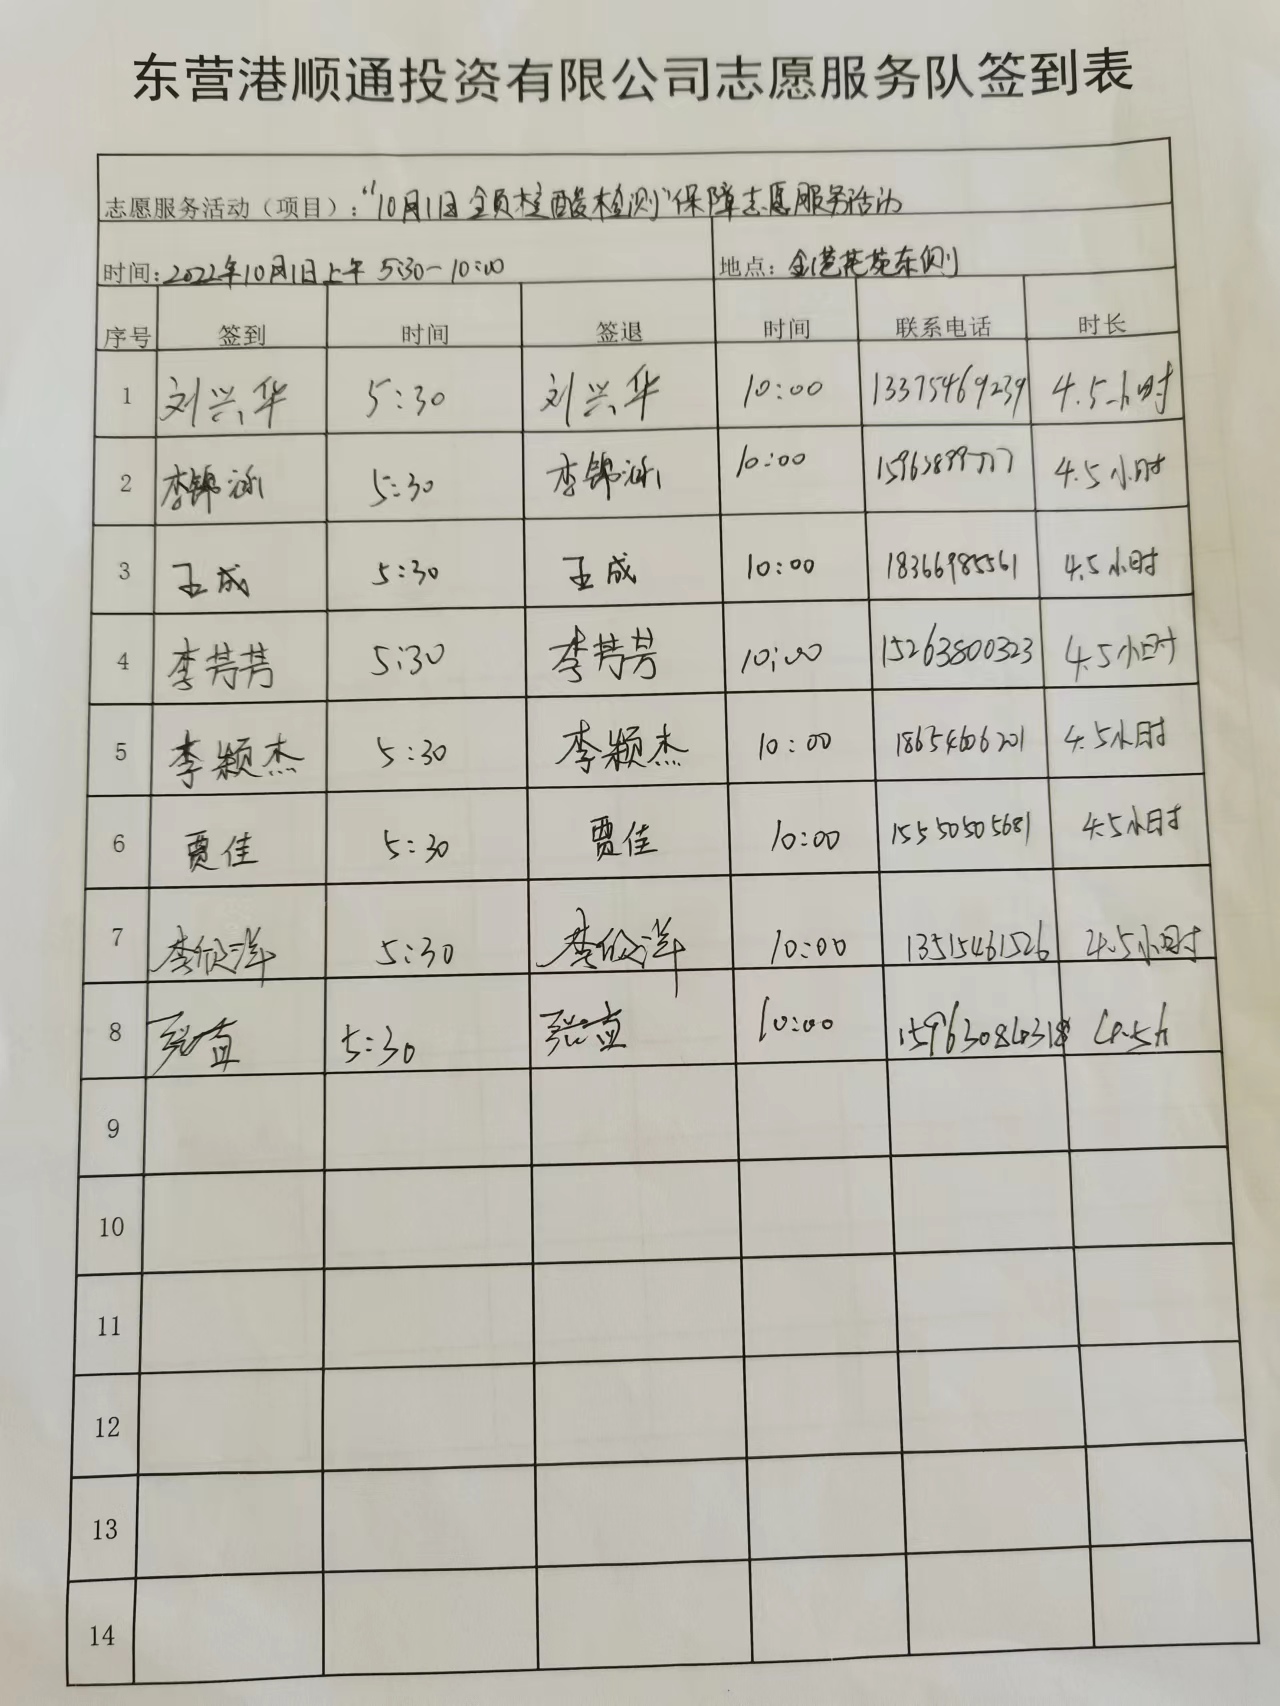 东营港顺通投资有限公司志愿服务队签到表
志愿服务活动（项目）：“10月1日全员核酸检测”保障志愿服务活动
时间：2022年10月1日上午 5:30-10:00 地点：金港花苑东侧
序号 签到 时间 签退 时间 联系电话 时长
1 刘兴华 5:30 刘兴华 10:00 13375469239 4.5小时
2 李锦泳 5:30 李锦泳 10:00 4.5小时
3 王成 5:30 王成 10:00 18366985561 4.5小时
4 李芳芳 5:30 李芳芳 10:00 15263800323 4.5小时
5 李颖杰 5:30 李颖杰 10:00 18654606201 4.5小时
6 贾佳 5:30 贾佳 10:00 15550505681 4.5小时
7 李欣洋 5:30 李欣洋 10:00 13515461526 4.5小时
8 5:30 10:00 4.5h
9
10
11
12
13
14